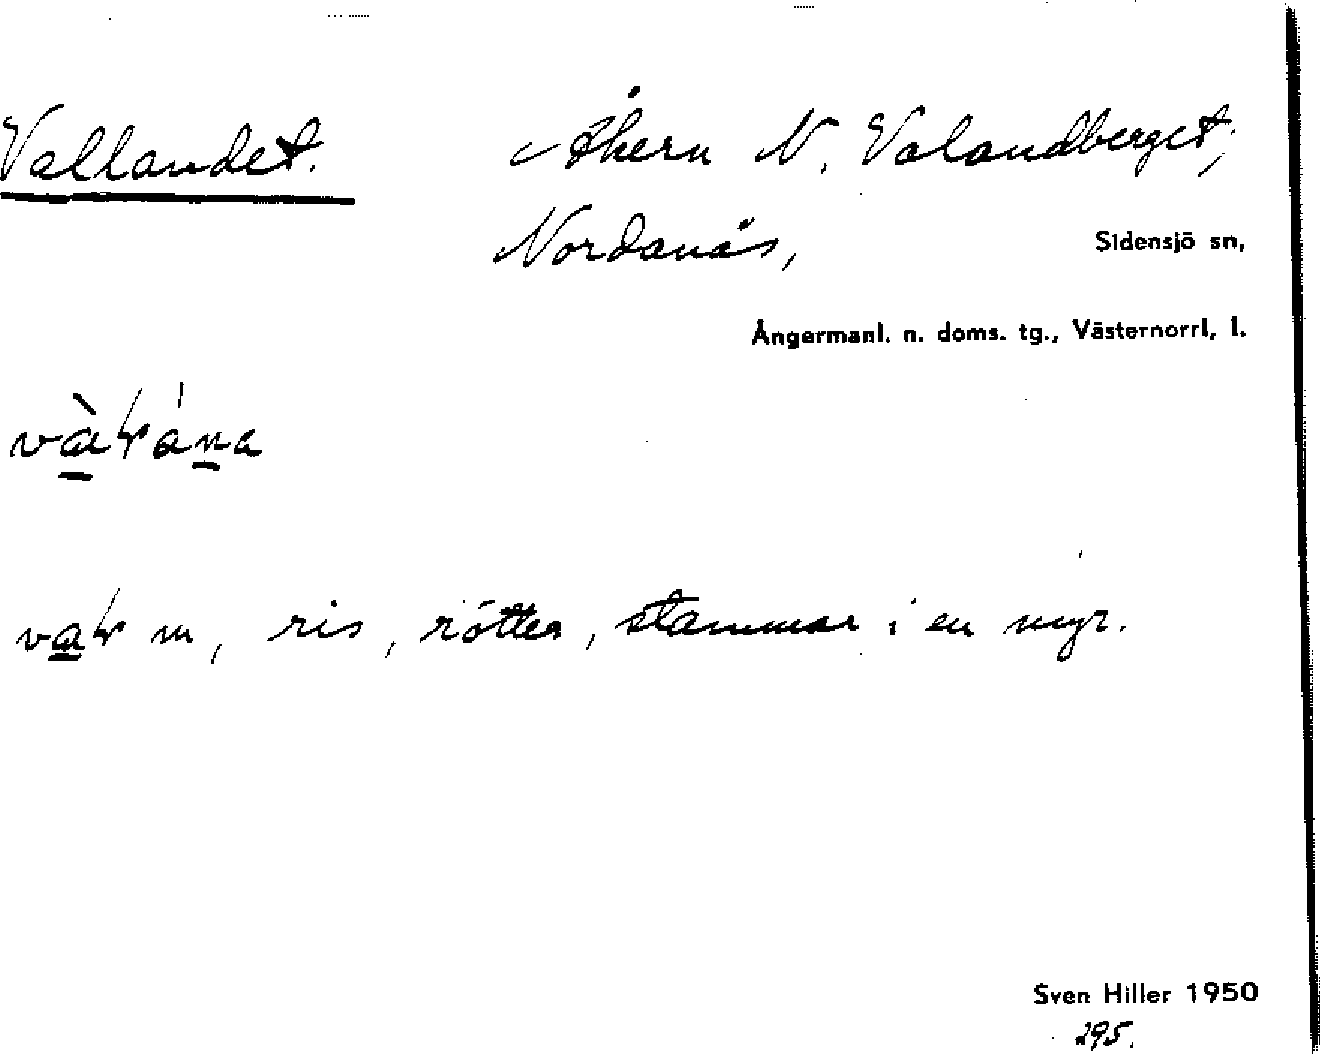 Vallandet. Åkern N. Valandberget,
Nordanås, Sidensjö sn,
Ångermanl. n. doms. tg., Västernorrl. l.
m, ris, rötter, stammar i en myr.
Sven Hiller 1950
295.